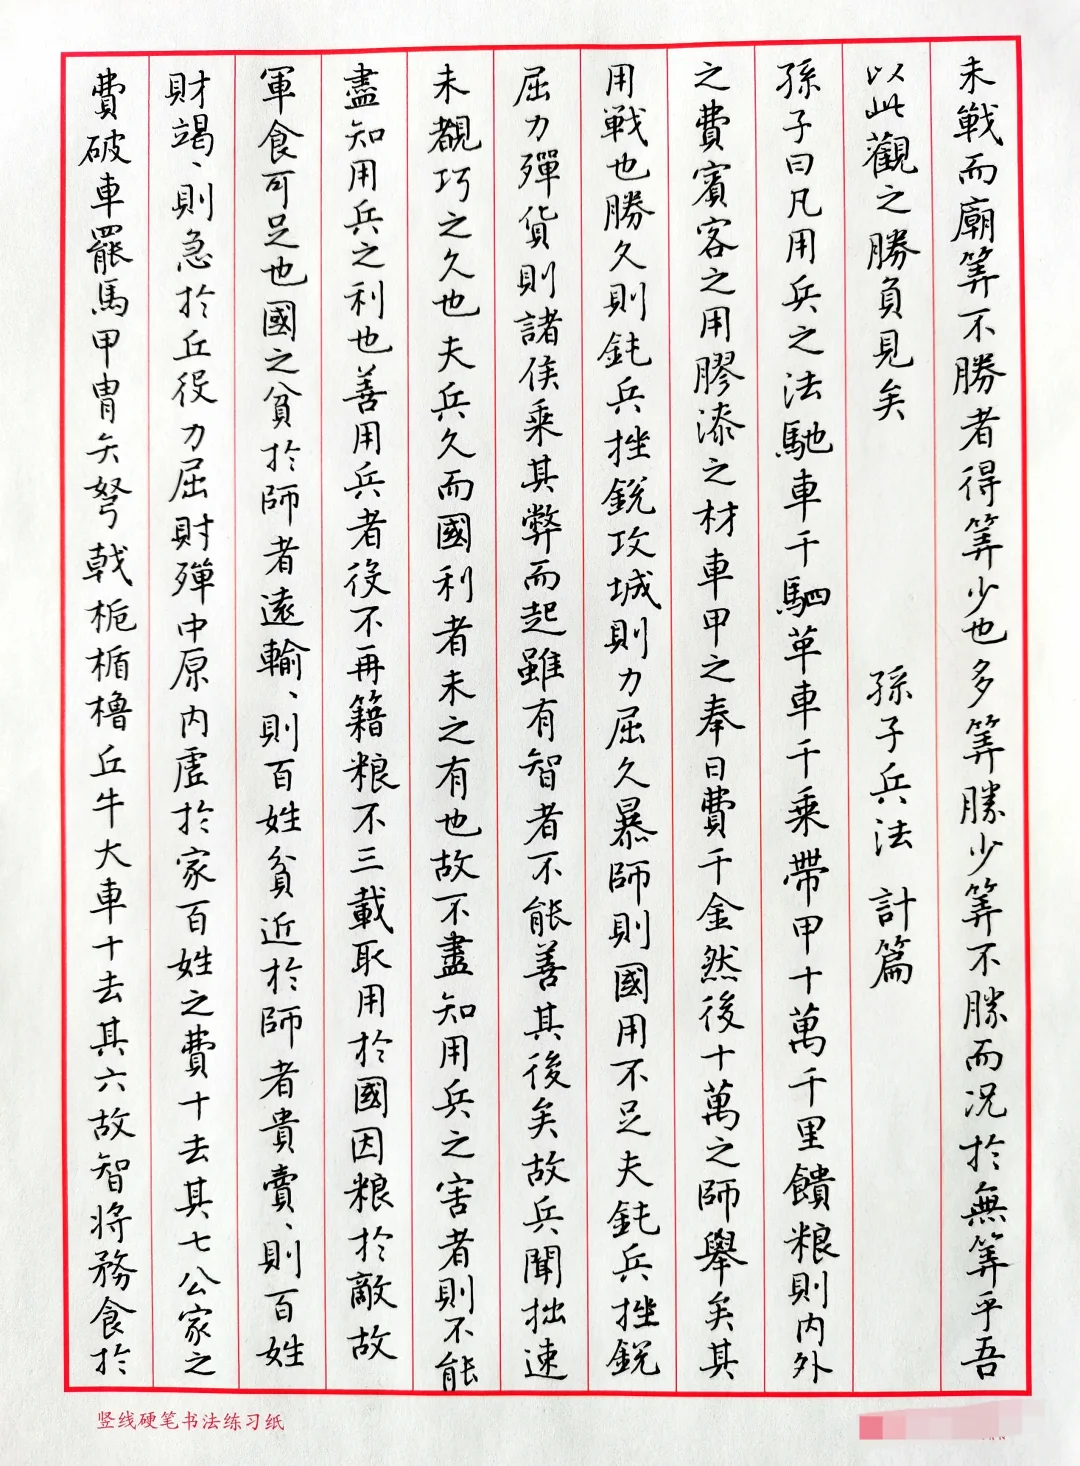 未戰而廟筭不勝者得筭少也多筭勝少筭不勝而况於無筭乎吾
以此觀之勝負見矣 孫子兵法 計篇
孫子曰凡用兵之法馳車千駟革車千乘帶甲十萬千里饋粮則内外
之費賓客之用膠漆之材車甲之奉日費千金然後十萬之師舉矣其
用戰也勝久則鈍兵挫鋭攻城則力屈久暴師則國用不足夫鈍兵挫鋭
屈力殫貨則諸侯乘其弊而起雖有智者不能善其後矣故兵聞拙速
未覩巧之久也夫兵久而國利者未之有也故不盡知用兵之害者則不能
盡知用兵之利也善用兵者役不再籍粮不三載取用於國因粮於敵故
軍食可足也國之貧於師者遠輸、則百姓貧近於師者貴賣、則百姓
財竭、則急於丘役力屈財殫中原内虛於家百姓之費十去其七公家之
費破車罷馬甲冑矢弩戟梔楯櫓丘牛大車十去其六故智將務食於
竖线硬笔书法练习纸